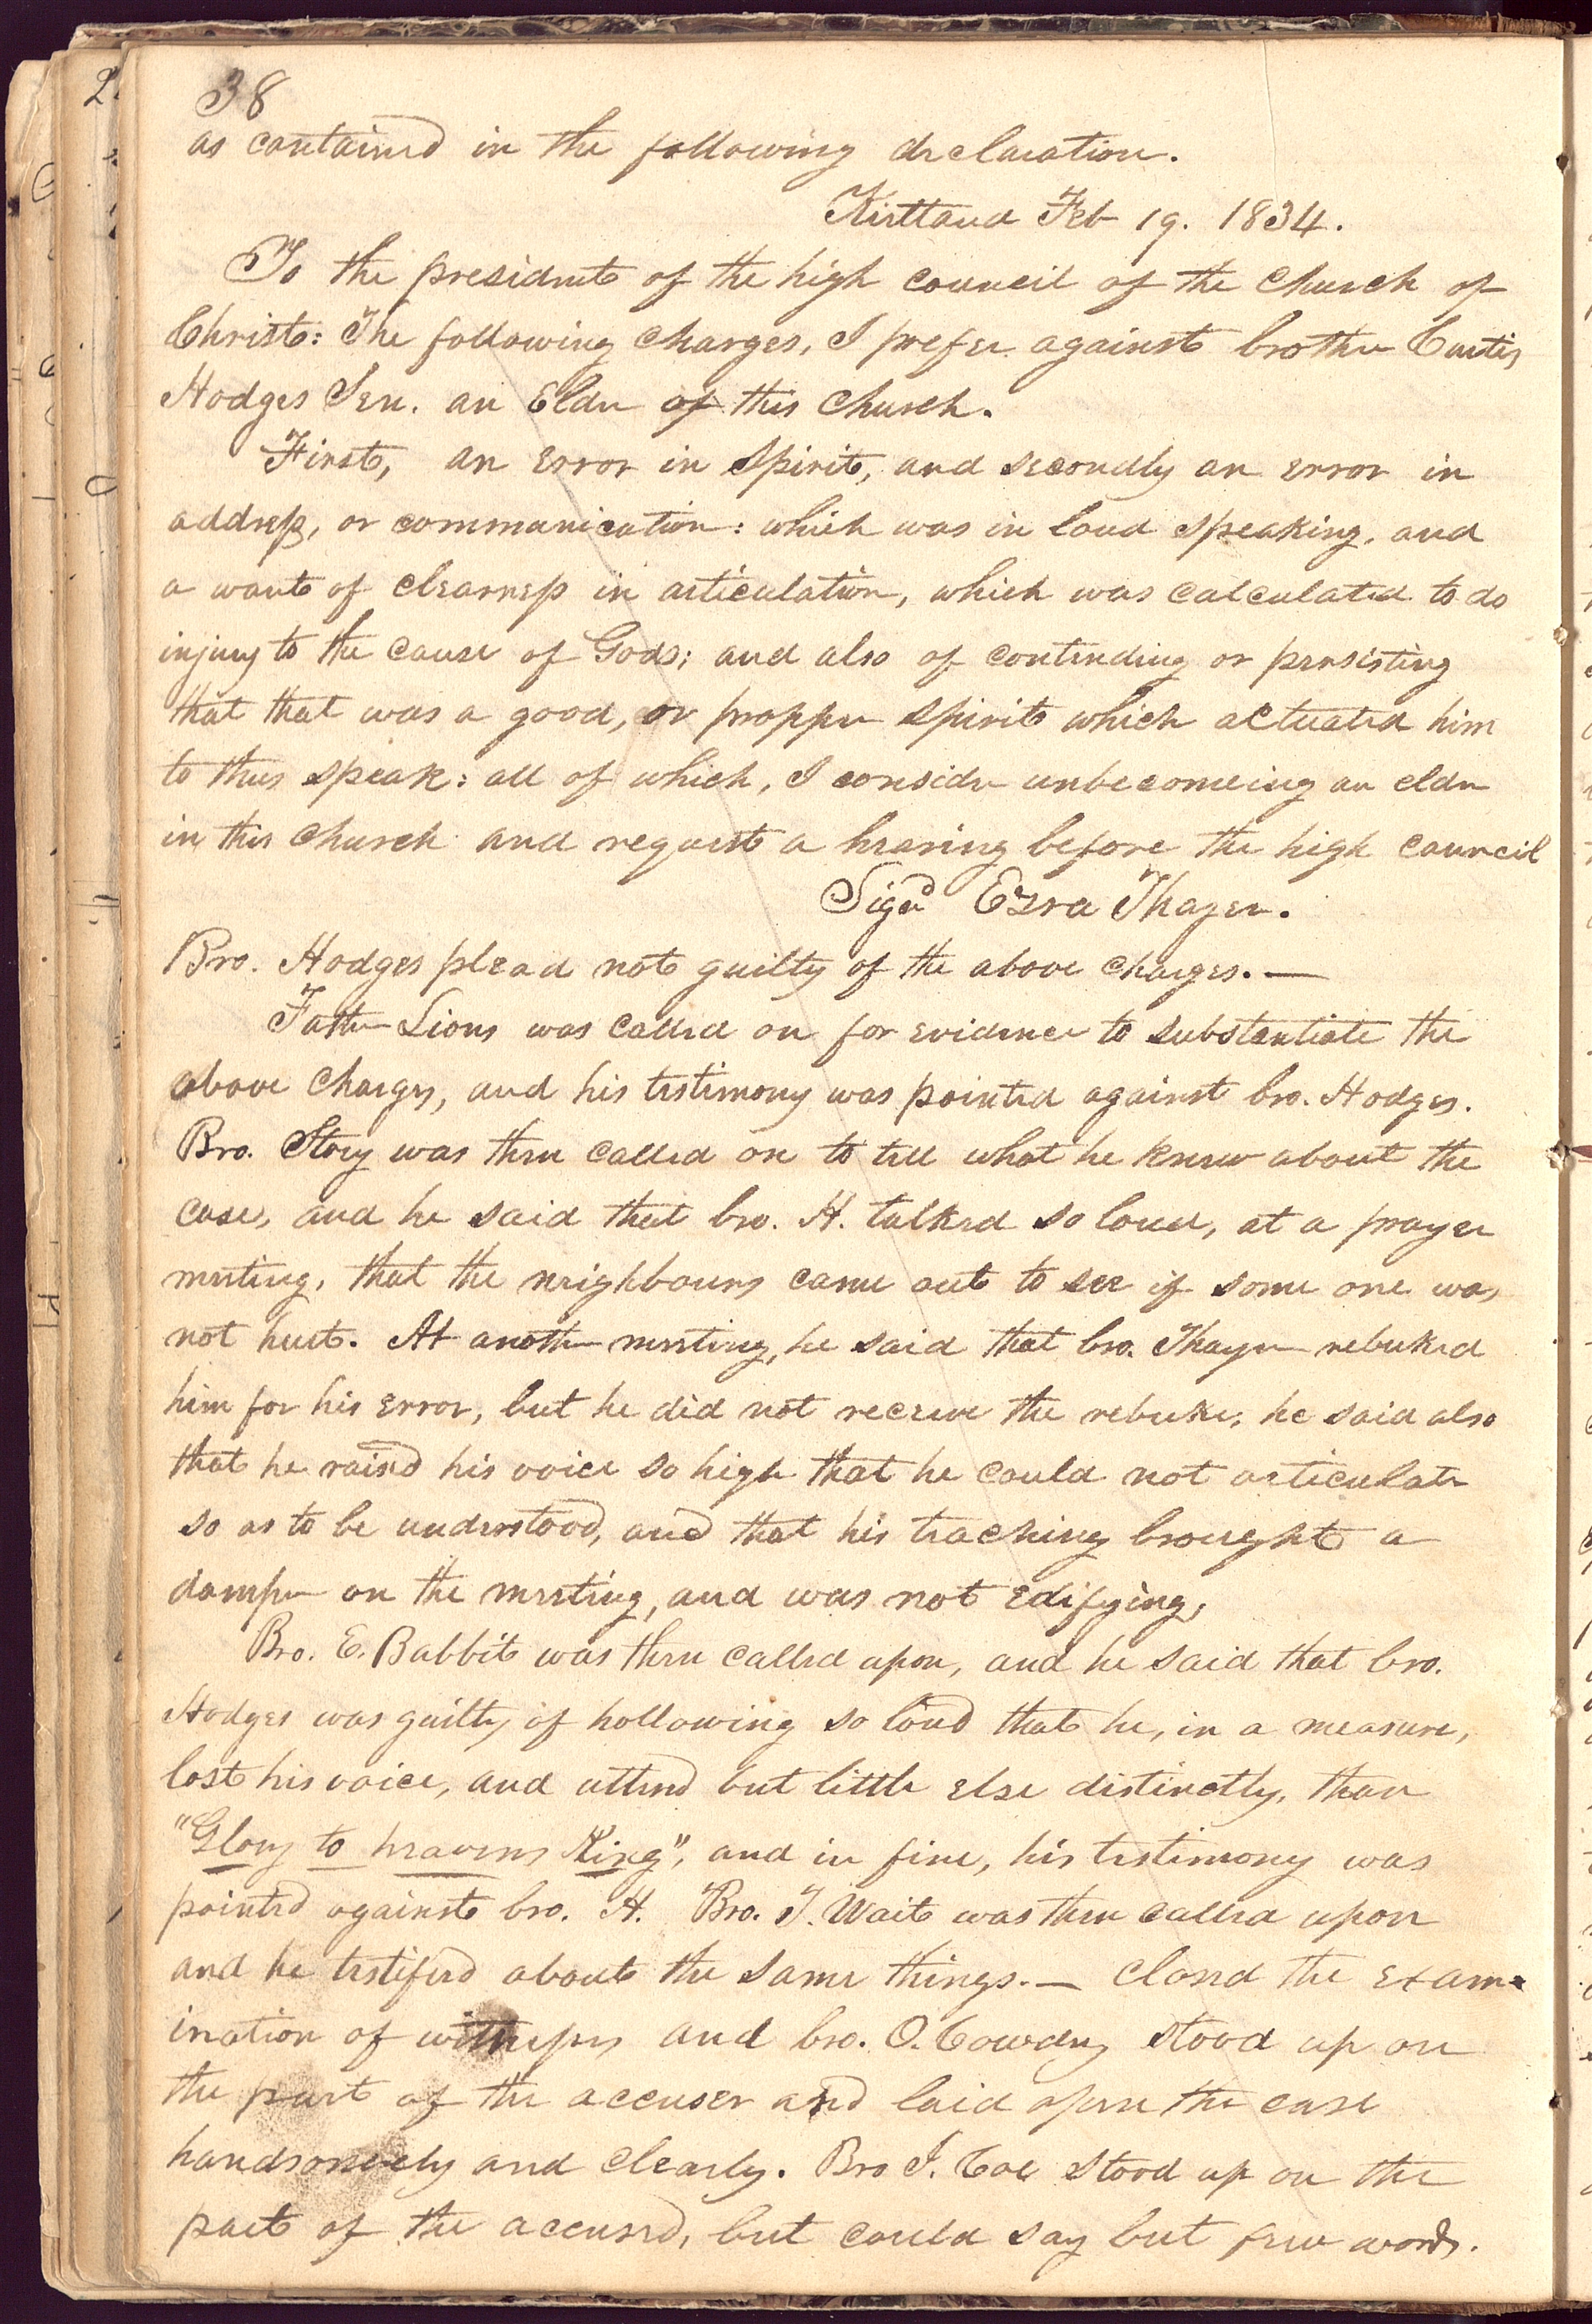 38
as contained in the following declaration.
Kirtland Feb 19. 1834.
To the presidents of the high council of the Church of
Christ: The following charges, I prefer against brother Curtis
Hodges Sen. an Elder of this church.
First, an error in spirit, and secondly an error in
address, or communication: which was in loud speaking, and
a want of clearness in articulation, which was calculated to do
injury to the cause of God; and also of contending or persisting
that that was a good, or propper spirit which actuated him
to thus speak: all of which, I consider unbecomeing an elder
in this church and request a hearing before the high council
Signd Ezra Thayer.
Bro. Hodges plead not guilty of the above charges. —
Father Lions was called on for evidence to substantiate the
above charges, and his testimony was pointed against bro. Hodges.
Bro. Story was then called on to tell what he knew about the
case, and he said that bro. H. talked so loud, at a prayer
meeting, that the neighbours came out to see if some one was
not hurt. At another meeting, he said that bro. Thayer rebuked
him for his error, but he did not receive the rebuke; he said also
that he raised his voice so high that he could not articulate
so as to be understood, and that his teaching brought a
damper on the meeting, and was not edifying,
Bro. E. Babbit was then called upon, and he said that bro.
Hodges was guilty of hollowing so loud that he, in a measure,
lost his voice, and uttered but little else distinctly, than
"Glory to heavens King", and in fine, his testimony was
pointed against bro. H. Bro. T. Wait was then called upon
and he testifed about the same things. — Closed the exam=
ination of witnesses and bro. O. Cowdery stood up on
the part of the accuser and laid open the case
handsomely and clearly. Bro J. Coe stood up on the
part of the accused, but could say but few words.